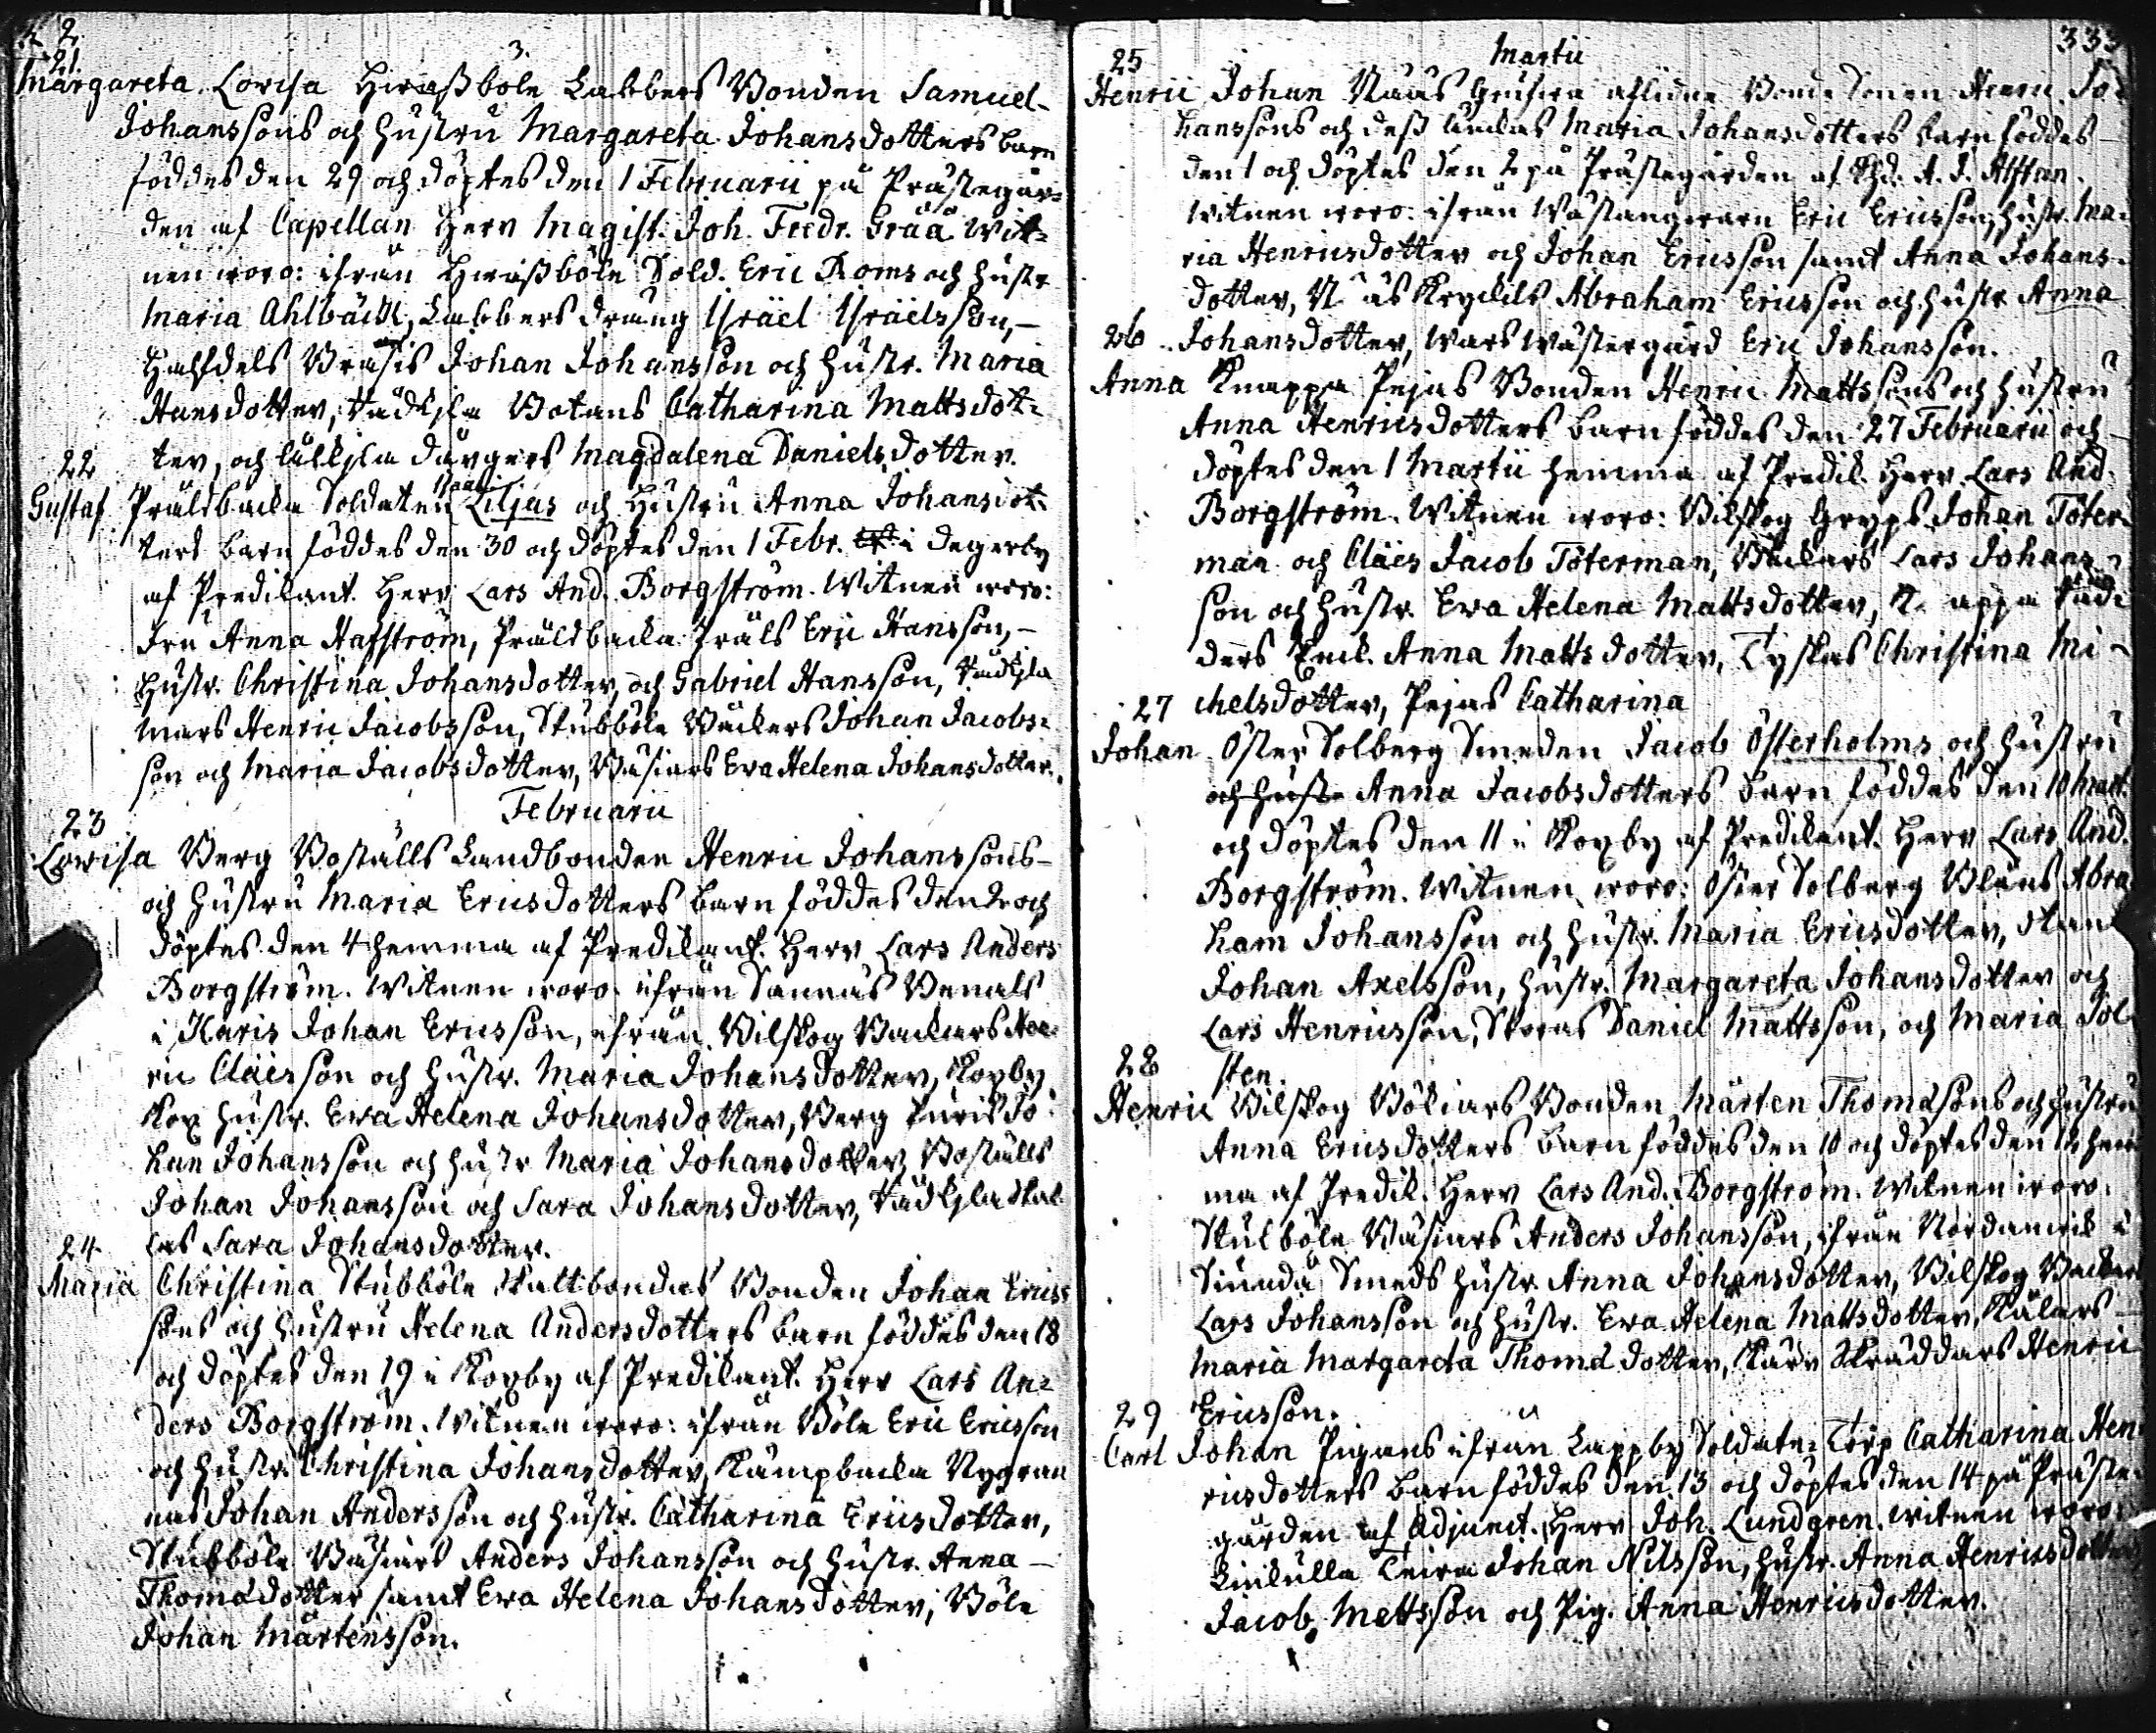 3.
21.
Margareta Lovisa Hwassböle Labbers Bonden Samuel
Johanssons och Hustru Margareta Johansdotters barn
föddes den 29 och döptes den 1 Februarii på Prästegår=
den af Capellan Herr Magist. Joh. Fredr. Gråå. Wit=
nen woro: ifrån Hwassböle Sold. Eric Roms och Hustr
Maria Ahlbäck, Labbers dräng Israel Israelsson,
Halfdels Johan Johansson och Hustr. Maria
Hansdotter, Täckjla Botans Catharina Mattsdot=
ter, och Magdalena Danielsdotter.
22
Gustaf Präldbacka Soldaten Liljas och Hustru Anna Johansdot=
ters barn föddes den 30 och döptes den 1 Febr. i Degerby
af Predikant. Herr Lars And. Borgström. Witnen woro:
Fru Anna Hafström, Präldbacka Präls Eric Hansson,
Hustr. Christina Johansdotter, och Gabriel Hansson,
Mars Henric Jacobsson, Stubböle Wäckers Johan Jacobs=
son och Maria Jacobsdotter, Eva Helena Johansdotter.
Februarii
23
Lowisa Berg Boställs Landbonden Henric Johanssons
och Hustru Maria Ericsdotters barn föddes den 2 och
döptes den 4 hemma af Predikant. Herr Lars Anders
Borgström. Witnen woro: ifrån Sannäs
i Karis Johan Ericsson, ifrån Bilskog Backars Hen=
ric Claësson och Hustr. Maria Johansdotter, Koxby
Kox Hustr. Ewa Helena Johansdotter, Berg Jo=
han Johansson och Hustr Maria Johansdotter, Boställs
Johan Johansson och Sara Johansdotter,
Sara Johansdotter.
24
Maria Christina Stubböle Skattbondas Bonden Johan Erics=
sons och Hustru Helena Andersdotters barn föddes den 18
och döptes den 19 i Koxby af Predikant. Herr Lars An=
ders Borgström. Witnen woro: ifrån Böle Eric Ericsson
och Hustr. Christina Johansdotter, Kämpbacka
Johan Andersson och Hustr. Catharina Ericsdotter,
Stubböle Anders Johansson och Hustr. Anna
Thomasdotter samt Ewa Helena Johansdotter, Böle
Johan Mårtensson.
Martii
333
25
Henric Johan Näås aflidne Bonde Sonen Henric Jo=
hanssons och dess Enkas Maria Johansdotters barn föddes
den 1 och döptes den 2 på Prästegården af A. J. Alftan.
Witnen woro: ifrån Eric Ericsson, Hustr. Ma=
ria Henricsdotter och Johan Ericsson samt Anna Johans=
dotter, Abraham Ericsson och Hustr Anna
Johansdotter, Wars Wästergård Eric Johansson.
26
Anna Knappa Pejas Bonden Henric Mattssons och Hustru
Anna Henricsdotters barn föddes den 27 Februarii och
döptes den 1 Martii hemma af Predik. Herr Lars And.
Borgström. Witnen woro: Bilskog Gryps Johan Töter=
man och Claës Jacob Töterman, Backars Lars Johans=
son och Hustr. Ewa Helena Mattsdotter,
Enk. Anna Mattsdotter, Tyskas Christina Mi=
chelsdotter, Pejas Catharina
27
Johan Öster Solberg Smeden Jacob Österholms och Hustru
och Hustr Anna Jacobsdotters barn föddes den 10 Mart.
och döptes den 11 i Koxby af Predikant. Herr Lars And.
Borgström. Witnen woro: Öster Solberg Abra
ham Johansson och Hustr. Maria Ericsdotter,
Johan Axelsson, Hustr. Margareta Johansdotter och
Lars Henricsson, Daniel Mattsson, och Maria Sol=
sten.
28
Henric Bilskog Böliars Bonden Mårten Thomassons och Hustru
Anna Ericsdotters barn föddes den 10 och döptes den 12 hem
ma af Predik. Herr Lars And. Borgström. Witnen woro:
Stubböle Anders Johansson, ifrån Nordanwik i
Siundå Smeds Hustr. Anna Johansdotter, Bilskog Backars
Lars Johansson och Hustr. Ewa Helena Mattsdotter,
Maria Margareta Thomasdotter, Skräddars Henric
Ericsson.
29
Carl Johan Pigans ifrån Lappby Soldate Torp Catharina Hen
ricsdotters barn föddes den 13 och döptes den 14 på Präste=
gården af Adjunct. Herr Joh. Lundgren. witnen woro:
Johan Nilsson, Hustr. Anna Henricsdotter,
Jacob Mattsson och Pig. Anna Henricsdotter.